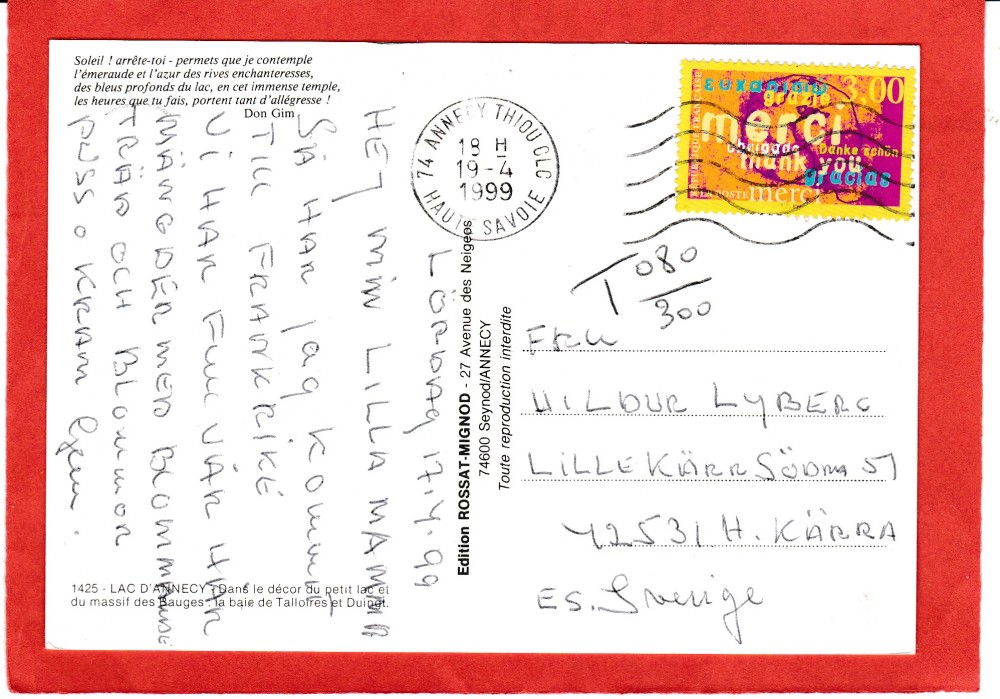 Soleil ! arrête-toi - permets que je contemple
l'émeraude et l'azur des rives enchanteresses,
des bleus profonds du lac, en cet immense temple,
les heures que tu fais, portent tant d'allégresse !
Don Gim
LÖRDAG 17.4.99
HEJ MIN LILLA MAMMA
SÅ HAR JAG KOMMIT
TILL FRANKRIKE
VI HAR FULL VÅR HÄR
MÄNGDER MED BLOMMANDE
TRÄD OCH BLOMMOR
PUSS O KRAM
1425 - LAC D'ANNECY - Dans le décor du petit lac et
du massif des Bauges : la baie de Talloires et Duingt.
74 ANNECY THIOU CLC
18 H
19-4
1999
HAUTE SAVOIE
Edition ROSSAT-MIGNOD - 27 Avenue des Neigeos
74600 Seynod/ANNECY
Toute reproduction interdite
3,00
ευχαριστώ
grazie
merci
obrigado
Danke schön
thank you
gracias
LA POSTE merci
T 080
300
FRU
WILBUR LYBERG
LILLEKÄRR SÖDRA 51
42531 H. KÄRRA
ES. Sverige